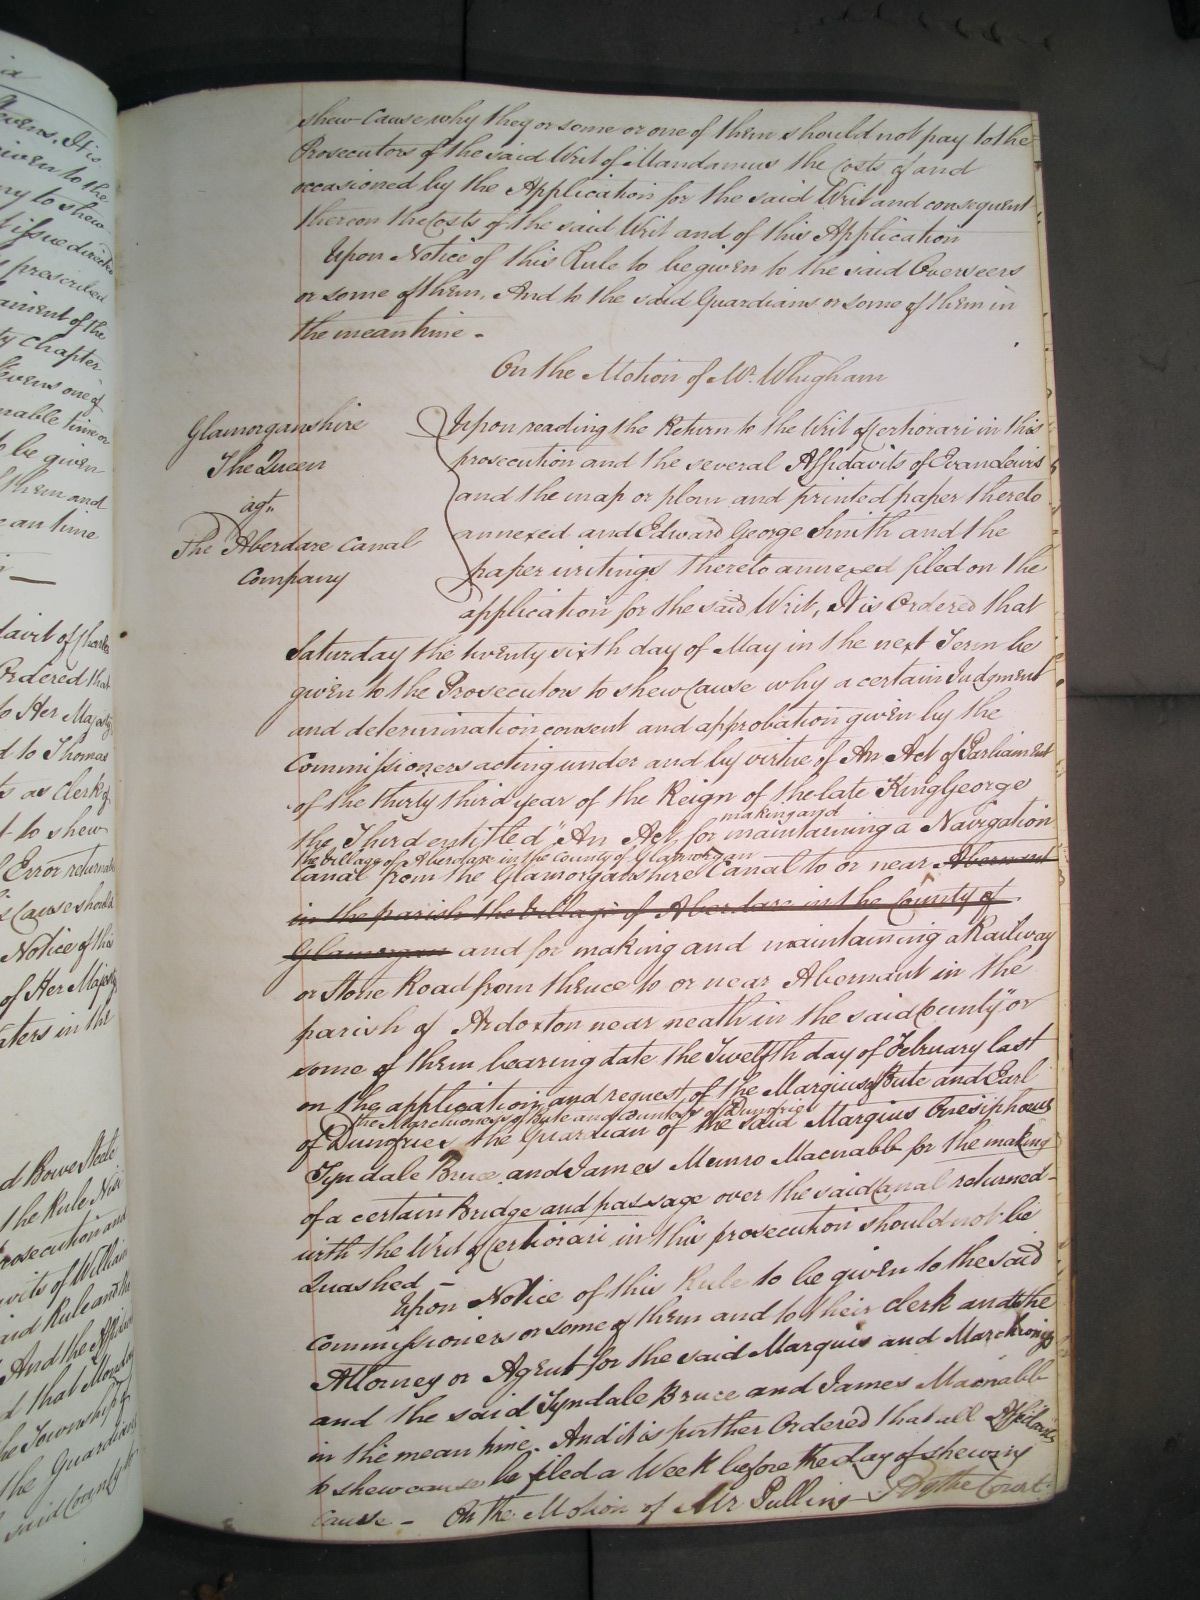 shew Cause why they or some or one of them should not pay to the
Prosecutors of the said Writ of Mandamus the Costs of and
occasioned by the Application for the said Writ and consequent
thereon the Costs of the said Writ and of this Application
Upon Notice of this Rule to be given to the said Overseers
or some of them, And to the said Guardians or some of them in
the meantime -
On the Motion of Mr. Whigham
Glamorganshire
The Queen
agt.
The Aberdare Canal
Company
Upon reading the Return to the Writ of Certiorari in this
prosecution and the several Affidavits of Evan Lewis
and the map or plan and printed paper thereto
annexed and Edward George Smith and the
paper writings thereto annexed filed on the
application for the said Writ, It is Ordered that
Saturday the twenty sixth day of May in the next Term be
given to the Prosecutors to shew Cause why a certain Judgment
and determination consent and approbation given by the
Commissioners acting under and by virtue of An Act of Parliament
of the thirty third year of the Reign of the late King George
making and
the Third entitled "An Act, for maintaining a Navigation
the Village of Aberdare in the County of Glamorgan
Canal from the Glamorganshire Canal to or near Abernant
in the parish the Village of Aberdare in the County of
Glamorgan and for making and maintaining a Railway
or Stone Road from thence to or near Abernant in the
parish of Ardoxton near neath in the said County" or
some of them bearing date the Twelfth day of February last
on the application and request of the Marquis of Bute and Earl
the Marchioness of Bute and Countess of Dumfries
of Dumfries the Guardian of the said Marquis Onesiphorus
Tyndale Bruce and James Munro Macnabb for the making
of a certain Bridge and passage over the said Canal returned
with the Writ of Certiorari in this prosecution should not be
Quashed -
Upon Notice of this Rule to be given to the said
Commissioners or some of them and to their clerk and the
Attorney or Agent for the said Marquis and Marchioness
and the said Tyndale Bruce and James Macnabb
in the mean time. And it is further Ordered that all Affidavits
to shew cause be filed a Week before the day of shewing
Cause - On the Motion of Mr Pulling - By the Court.